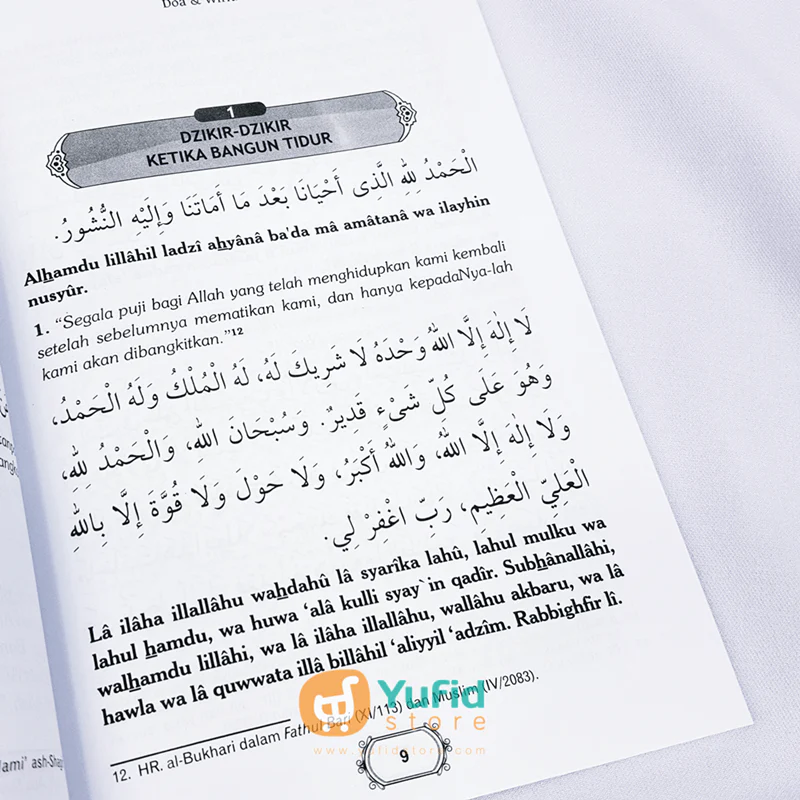 Doa &
1
DZIKIR-DZIKIR
KETIKA BANGUN TIDUR
الْحَمْدُ لِلّٰهِ الَّذِى أَحْيَانَا بَعْدَ مَا أَمَاتَنَا وَإِلَيْهِ النُّشُورُ.
Alhamdu lillâhil ladzî ahyânâ ba'da mâ amâtanâ wa ilayhin
nusyûr.
1. “Segala puji bagi Allah yang telah menghidupkan kami kembali
setelah sebelumnya mematikan kami, dan hanya kepadaNya-lah
kami akan dibangkitkan.”12
لَا إِلٰهَ إِلَّا اللهُ وَحْدَهُ لَا شَرِيكَ لَهُ، لَهُ الْمُلْكُ وَلَهُ الْحَمْدُ،
وَهُوَ عَلَى كُلِّ شَىْءٍ قَدِيرٌ. وَسُبْحَانَ اللهِ، وَالْحَمْدُ لِلّٰهِ،
وَلَا إِلٰهَ إِلَّا اللهُ، وَاللهُ أَكْبَرُ، وَلَا حَوْلَ وَلَا قُوَّةَ إِلَّا بِاللهِ
الْعَلِيِّ الْعَظِيمِ، رَبِّ اغْفِرْ لِي.
Lâ ilâha illallâhu wahdahû lâ syarîka lahû, lahul mulku wa
lahul hamdu, wa huwa ‘alâ kulli syay`in qadîr. Subhânallâhi,
walhamdu lillâhi, wa lâ ilâha illallâhu, wallâhu akbaru, wa lâ
hawla wa lâ quwwata illâ billâhil ‘aliyyil ‘adzîm. Rabbighfir lî.
12. HR. al-Bukhari dalam Fathul Bari (XI/113) dan Muslim (IV/2083).
9
Yufid
store
www.yufidstore.com